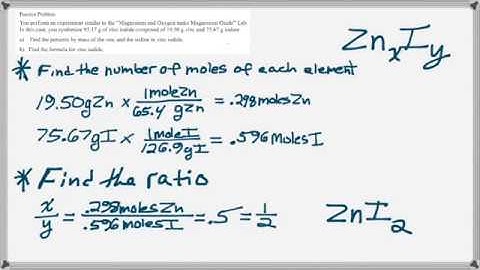 Practice Problem
You perform an experiment similar to the "Magnesium and Oxygen makes Magnesium Oxide" Lab
In this case, you synthesize 95.17 g of zinc iodide composed of 19.50 g zinc and 75.67 g iodine
a) Find the percents by mass of the zinc and the iodine in zinc iodide.
b) Find the formula for zinc iodide.
ZnxIy
* Find the number of moles of each element
19.50gZn x 1moleZn/65.4 gZn = .298molesZn
75.67gI x 1moleI/126.9gI = .596MolesI
* Find the ratio
x/y = .298molesZn/.596molesI = .5 = 1/2
ZnI2